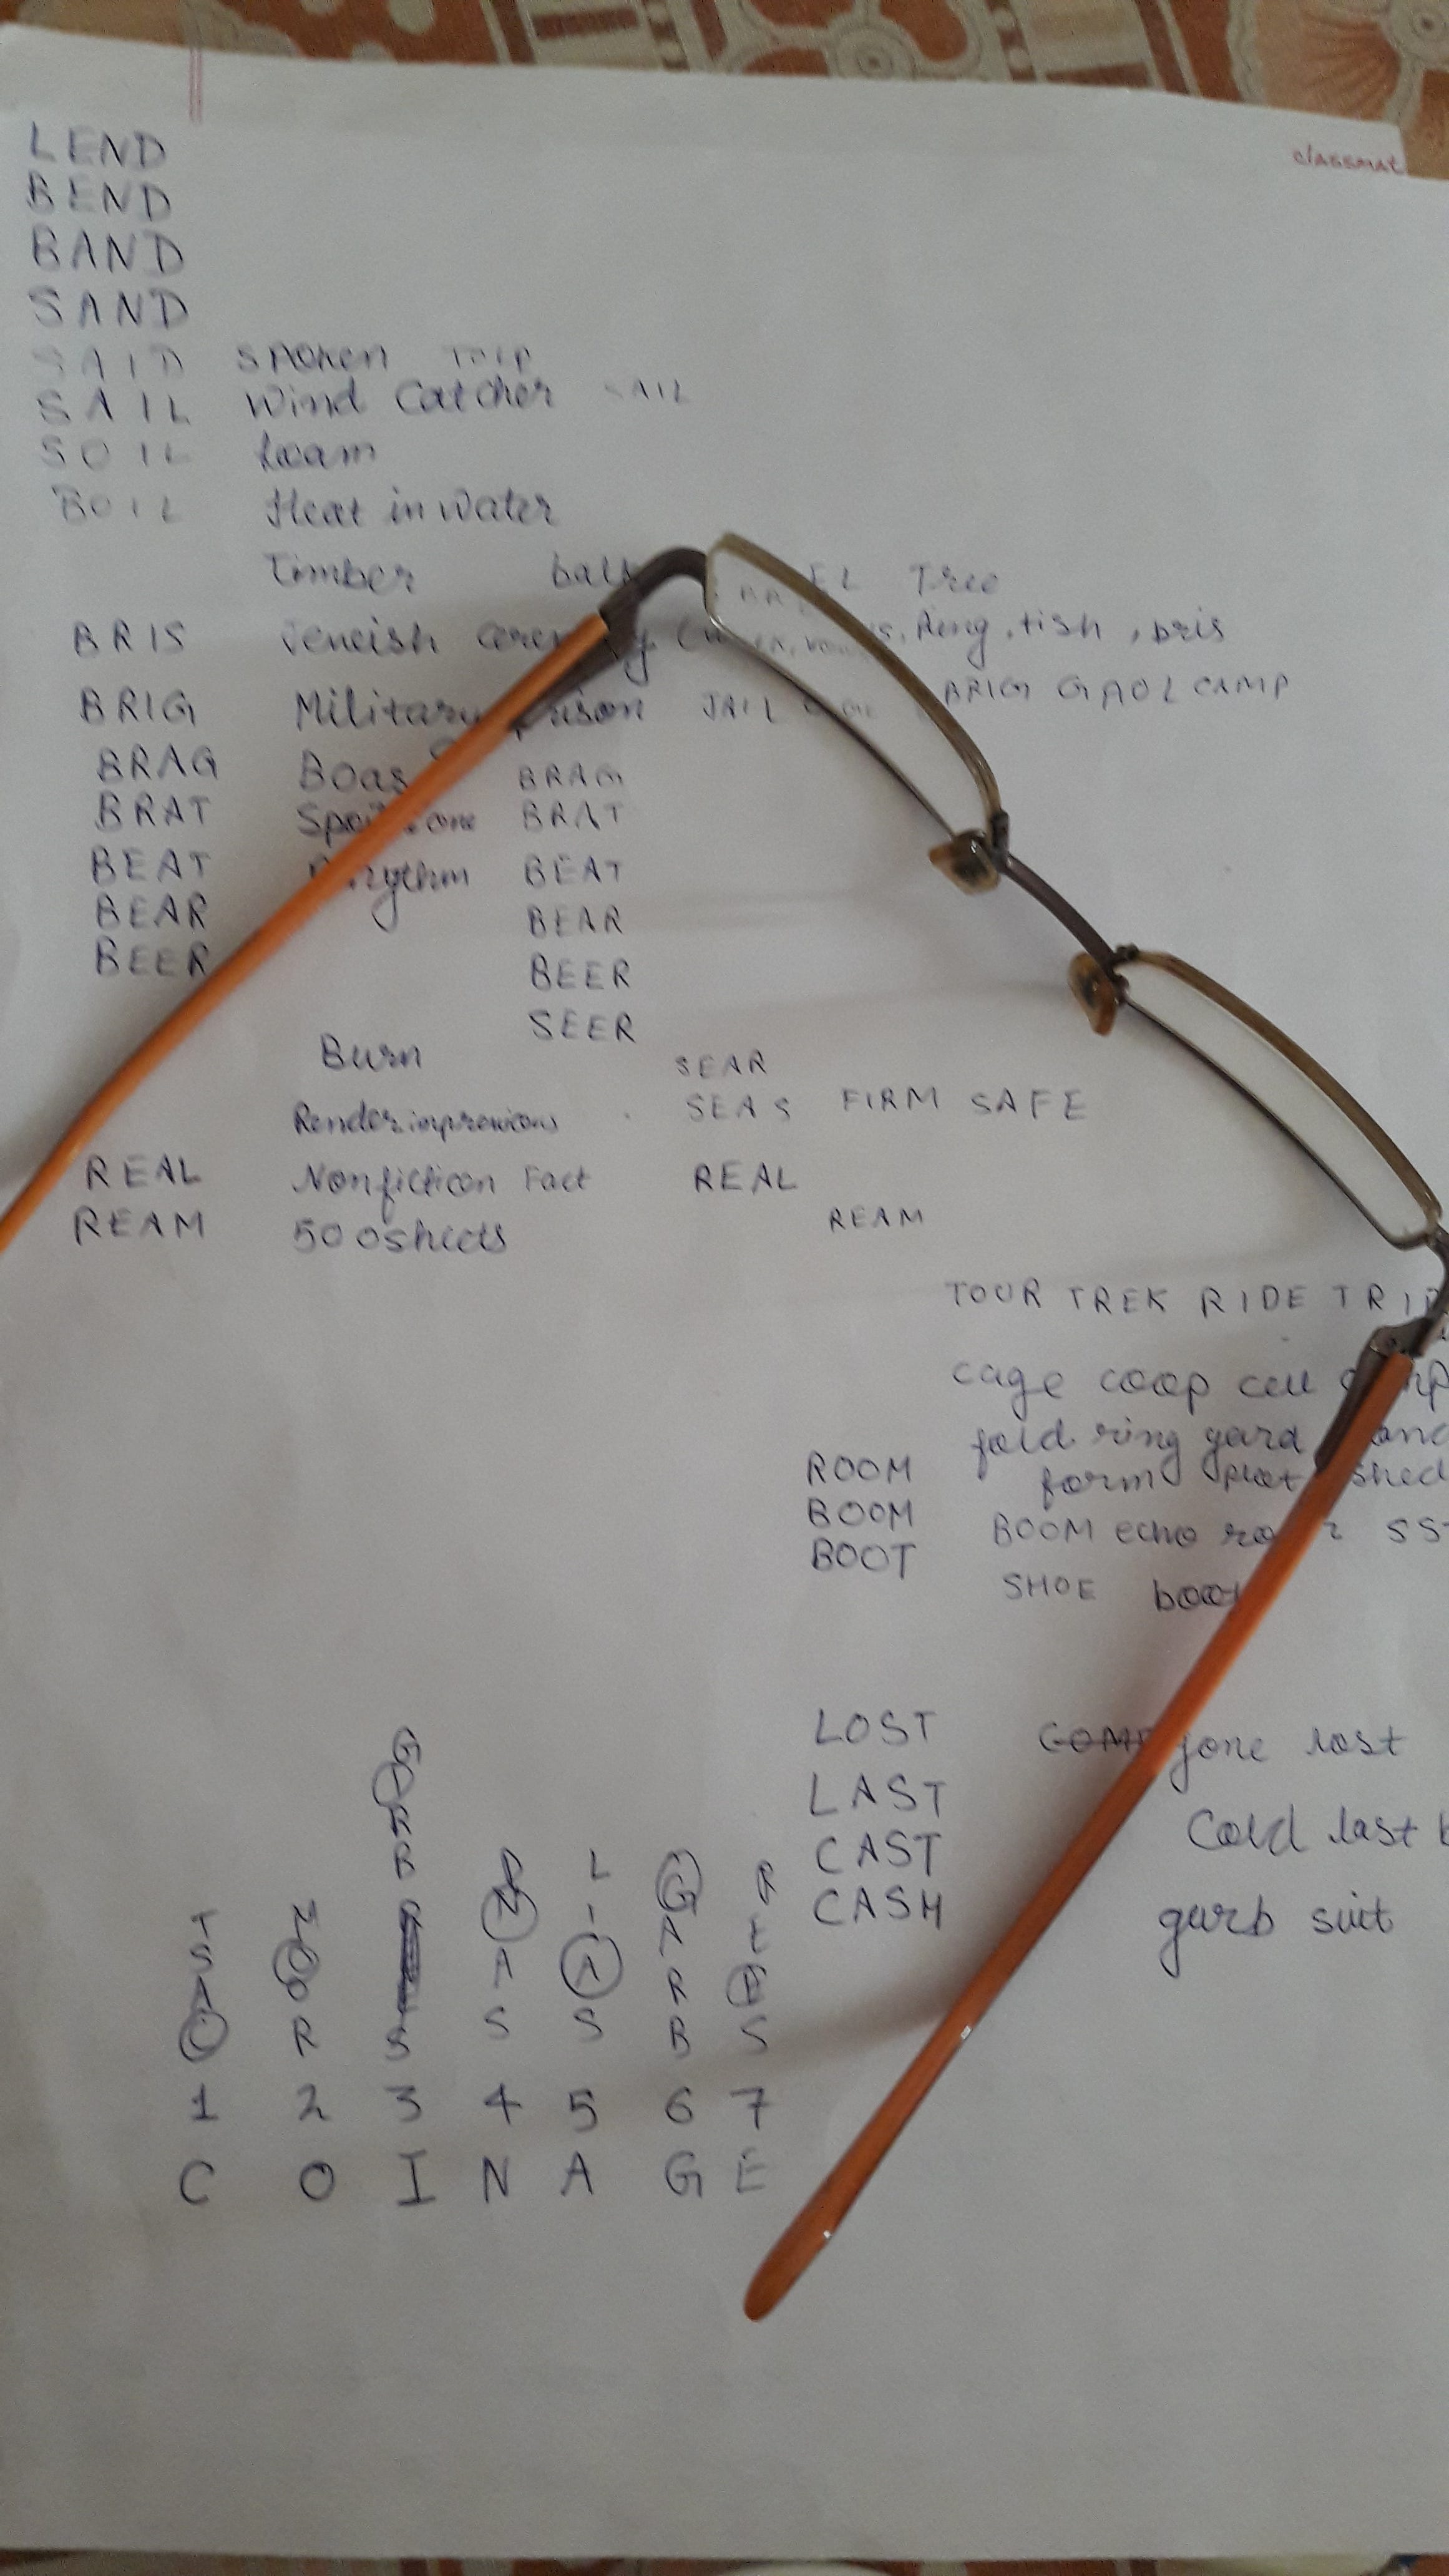 classmat
LEND
BEND
BAND
SAND
SAID spoken TRIP
SAIL Wind Catcher SAIL
SOIL loam
BOIL Heat in Water
Timber Tree
BRIS ring, tish, bris
BRIG Military JAIL BRIG GAOL CAMP
BRAG Boas BRAG
BRAT BRAT
BEAT BEAT
BEAR BEAR
BEER BEER
SEER
Burn SEAR
Render impressions SEAS FIRM SAFE
REAL Nonfiction Fact REAL
REAM 500sheets REAM
TOUR TREK RIDE TRIP
cage coop cell
fold ring yard
ROOM form plot shed
BOOM BOOM echo
BOOT SHOE boot
LOST gone lost
LAST Cold last
CAST
CASH garb suit
G
D
R
B
T M D L G R
S O N I A E
A O A A R E
C R S S S B S
1 2 3 4 5 6 7
C O I N A G E